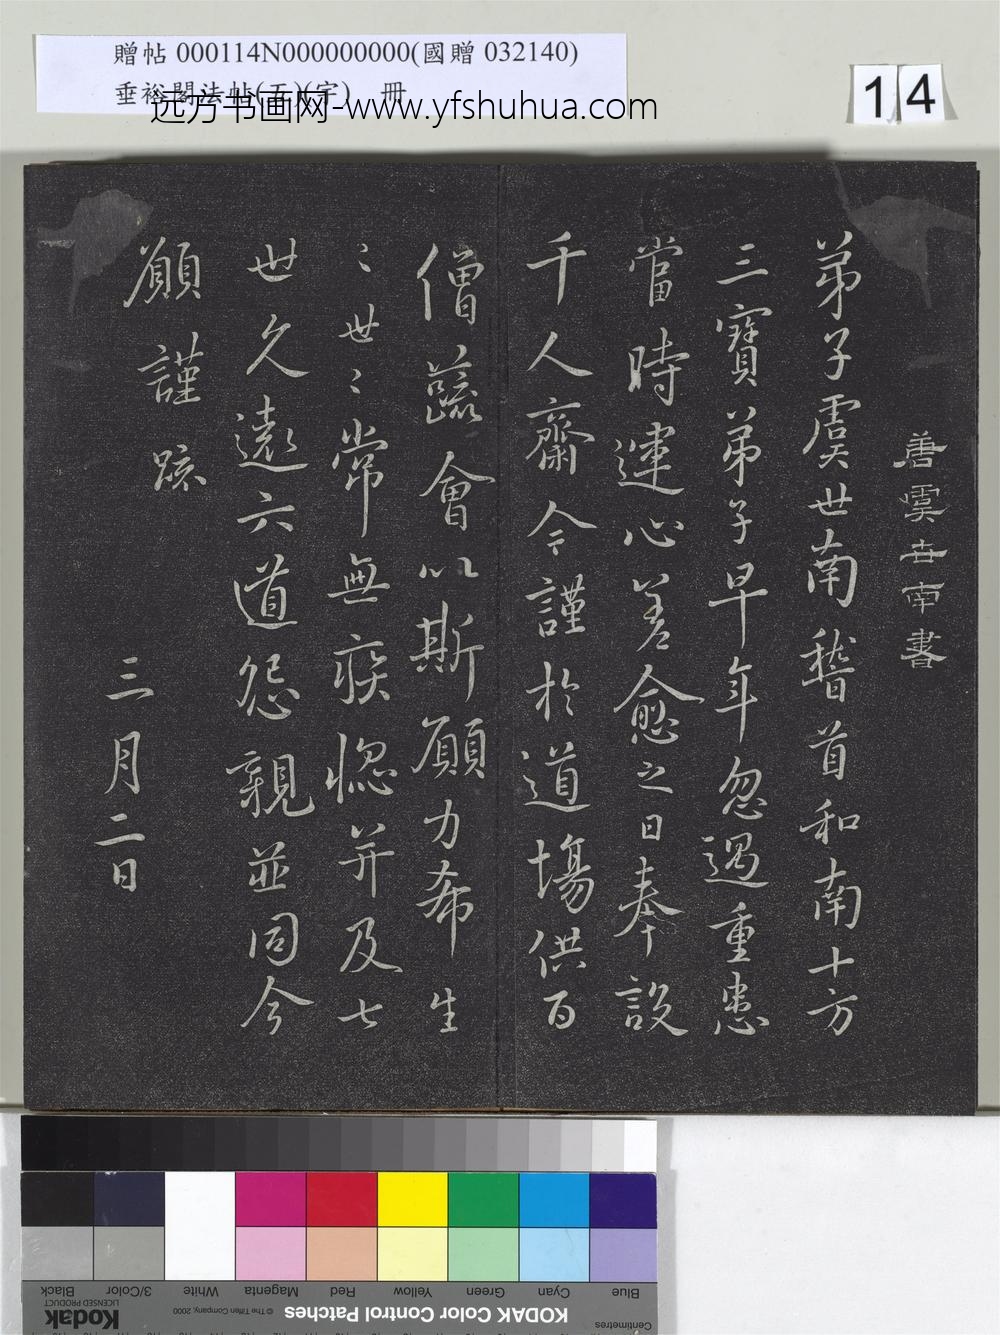 贈帖 000114N000000000(國贈 032140)
垂裕閣法帖(五)(字) 冊
远方书画网-www.yfshuhua.com
14
唐虞世南書
弟子虞世南稽首和南十方
三寶弟子早年忽遇重患
當時運心差愈之日奉設
千人齋今謹於道場供百
僧蔬會以斯願力希生
〻世〻常無疾惱并及七
世久遠六道怨親並同今
願謹疏
三月二日
Black
3/Color
White
Magenta
Red
Yellow
Green
Cyan
Blue
Kodak
LICENSED PRODUCT
© The Tiffen Company, 2000
KODAK Color Control Patches
Centimetres